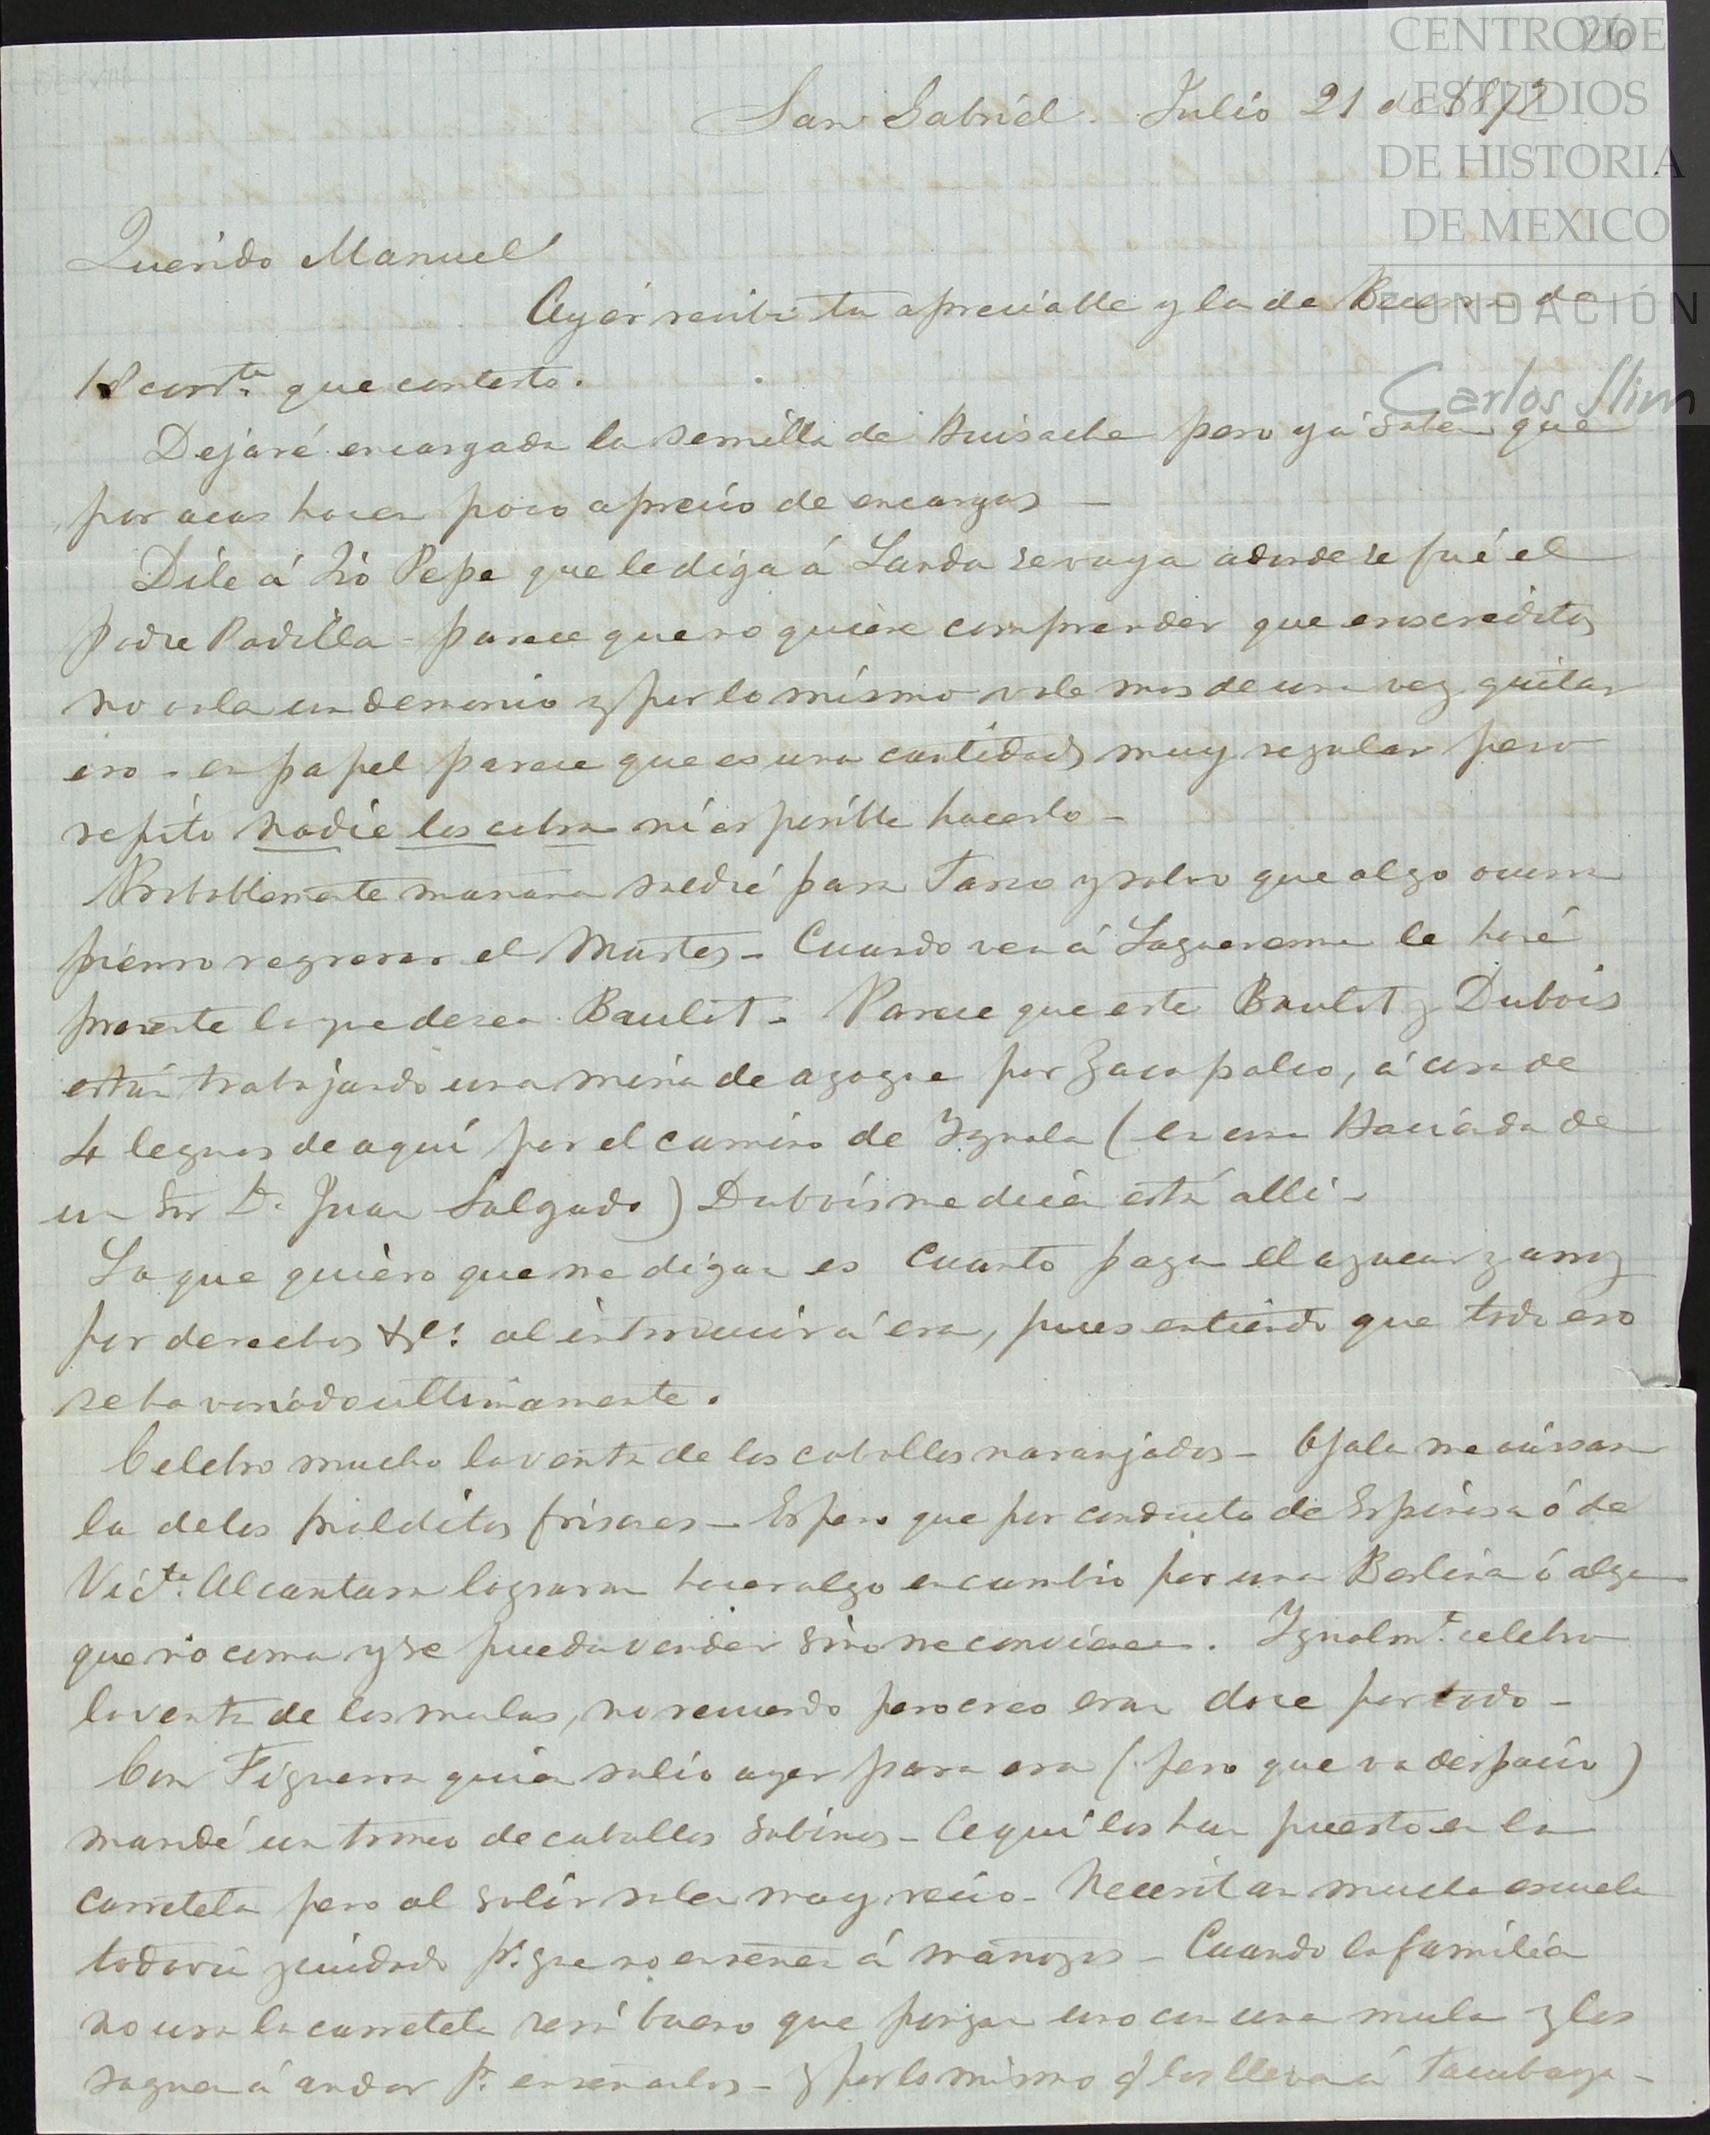 26
CENTRO DE
ESTUDIOS
DE HISTORIA
DE MEXICO
FUNDACIÓN
Carlos Slim
San Gabriél. Julio 21 de 1872
Querido Manuel
Ayér recibi tu apreciable y la de de
18 corrte. que contesto.
Dejaré encargada la semilla de Huisache pero yá saben que
por acas hacen poco aprecio de encargos —
Dile á Tio Pepe que le diga á Landa se vaya adonde se fué el
Padre Padilla - parece que no quiere comprender que esos creditos
no valen un demonio y por lo mismo vale mas de una vez quitar
eso - en papel parece que es una cantidad muy regular pero
repito nadie los cobra ni es posible hacerlo -
Probablemente mañana saldré para Tasco y salvo que algo ocurra
piénso regresar el Martes - Cuando vea á Laguerenne le haré
presente lo que desea Baulot - Parece que este Baulot y Dubois
están trabajando una mina de azogue por Zacapalco, á cosa de
4 leguas de aqui por el camino de Iguala (en una Hacienda de
un Sor Dn. Juan Salgado) Dubois me dicen está alli -
Lo que quiéro que me digan es cuanto paga el azucar y arroz
por derechos &c. al introducir á esa, pues entiendo que todo eso
se ha variado ultimamente.
Celebro mucho la venta de los caballos naranjados - Ojala me avisaran
la de los malditos frisones - Espero que por conducto de Espinosa ó de
Victe. Alcantara lograran hacer algo en cambio por una Berlina ó algo
que no coma y se pueda vender sino me conviene. Igualmte. celebro
la venta de las mulas, no recuerdo pero creo eran doce por todo -
Con Figueroa quien salió ayer para esa (pero que va despacio)
mandé un tronco de caballos sabinos - Aqui los han puesto en la
carretela pero al salir salen muy recio - Necesitan mucha escuela
todavia y cuidado pa. que no enseñen á mañosos - Cuando la familia
no usa la carretela será bueno que pongan uno con una mula y los
saquen á andar pa. enseñarlos - y por lo mismo q los lleven á Tacubaya -